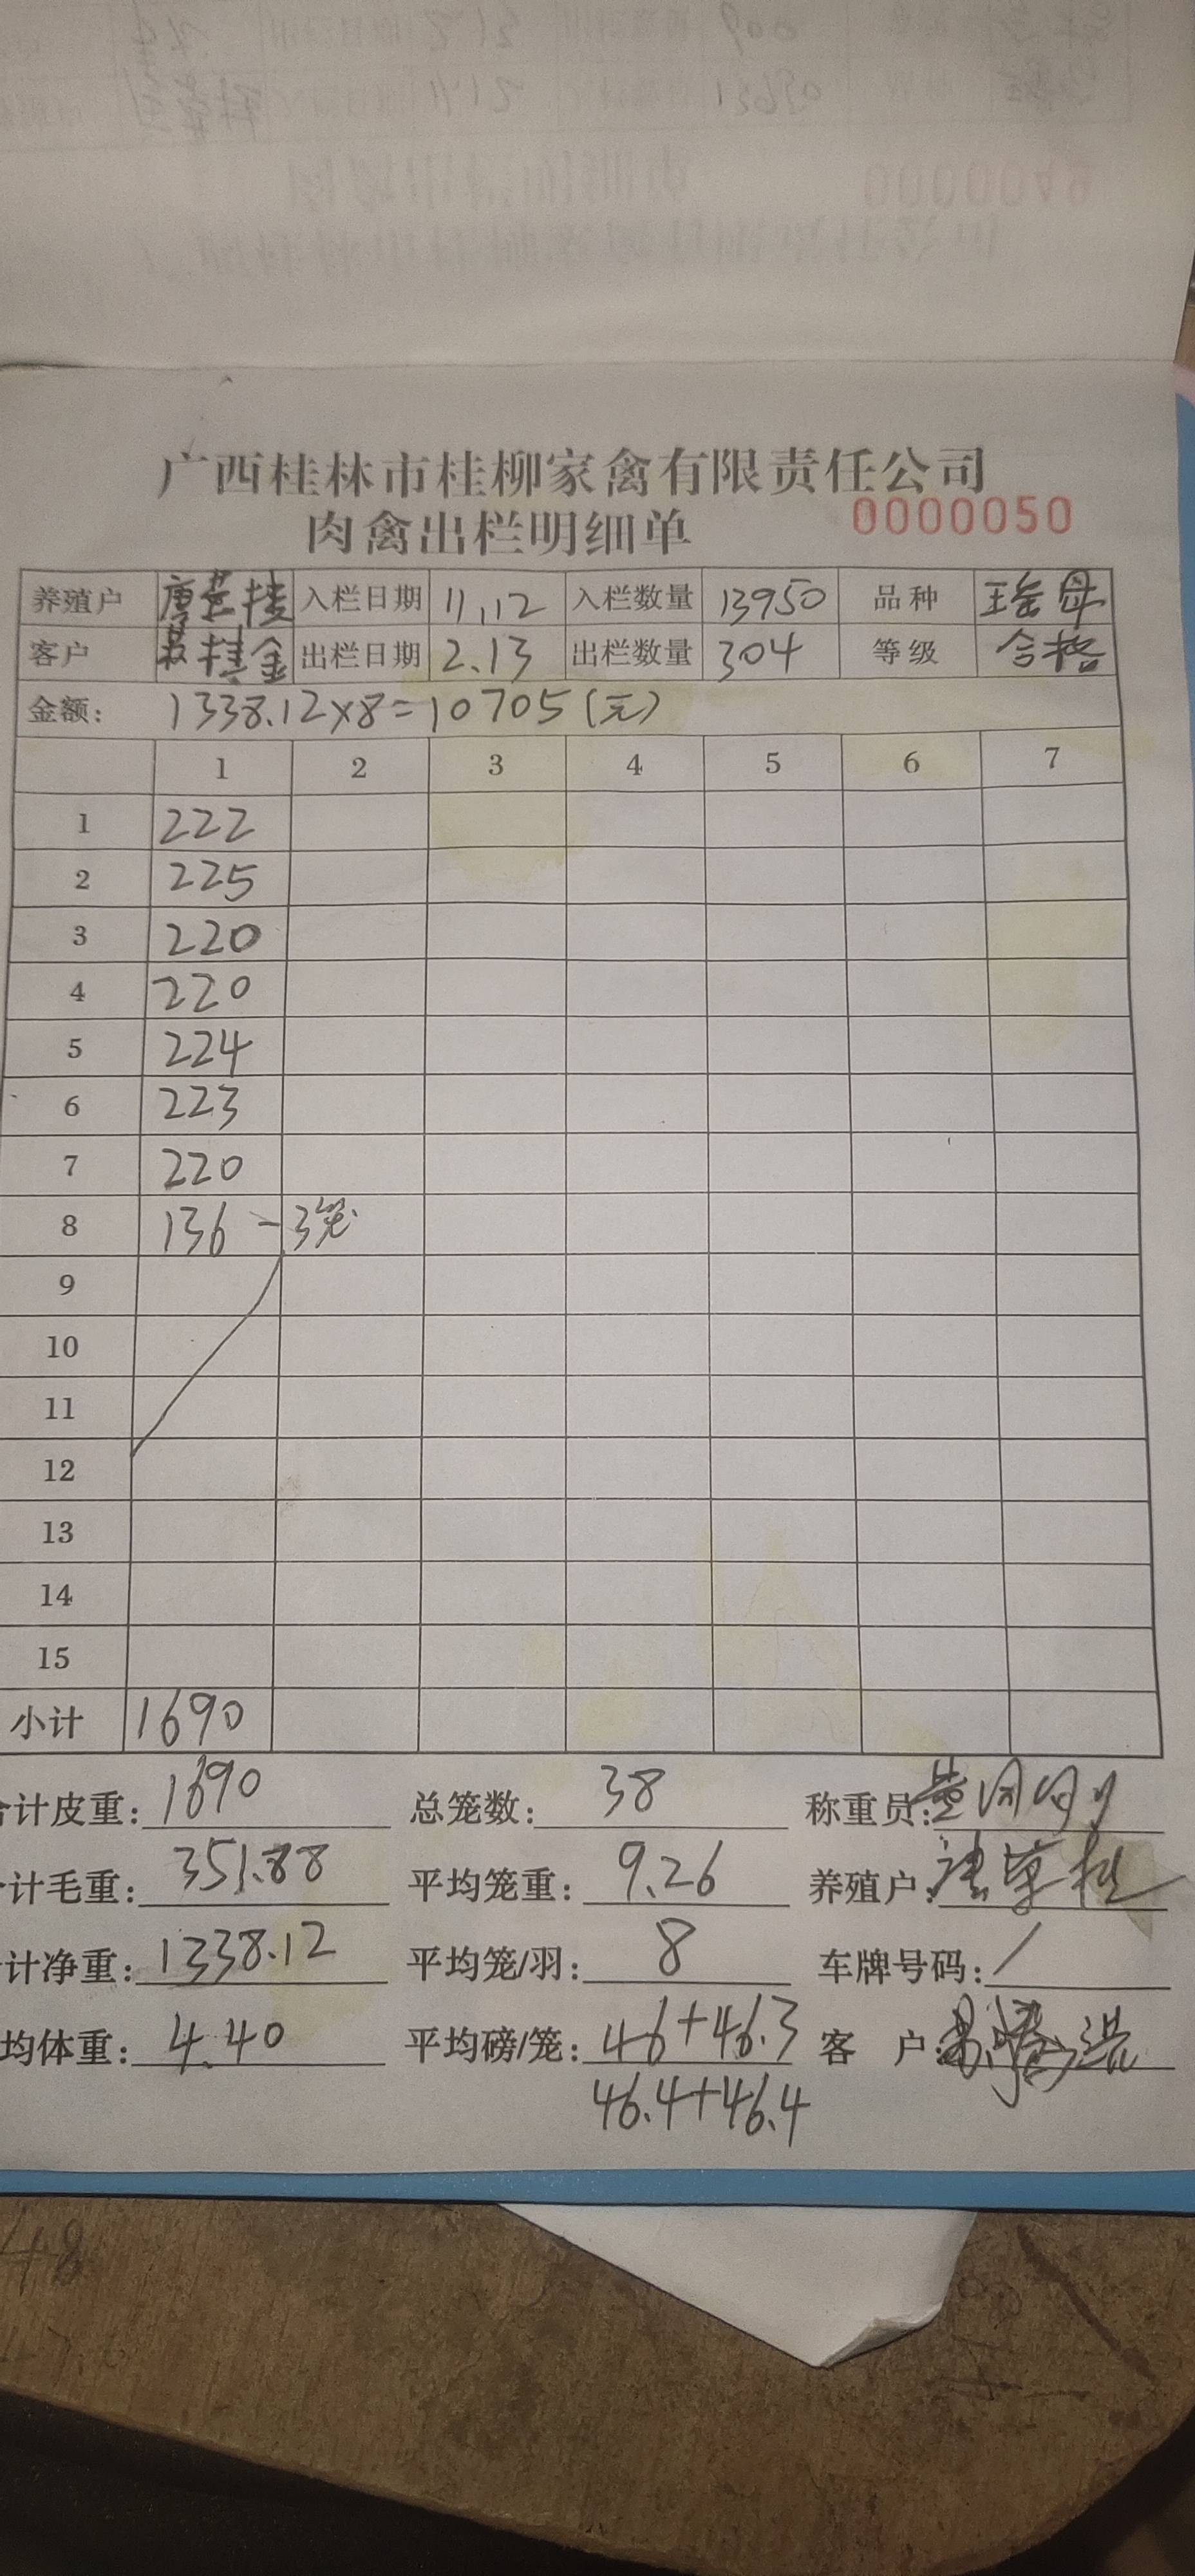 广西桂林市桂柳家禽有限责任公司
肉禽出栏明细单 0000050
养殖户 唐 入栏日期 11.12 入栏数量 13950 品种 瑶母
客户 桂金 出栏日期 2.13 出栏数量 304 等级 合格
金额: 1338.12×8=10705(元)
1 2 3 4 5 6 7
1 222
2 225
3 220
4 220
5 224
6 223
7 220
8 136 -3笼
9
10
11
12
13
14
15
小计 1690
计皮重: 1690 总笼数: 38 称重员:
计毛重: 351.88 平均笼重: 9.26 养殖户:
计净重: 1338.12 平均笼/羽: 8 车牌号码: /
均体重: 4.40 平均磅/笼: 46+46.3 客 户:
46.4+46.4